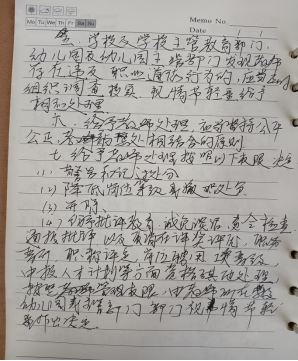 Memo No.
Mo Tu We Th Fr Sa Su
Date
五、学校及学校主管教育部门、
幼儿园及幼儿园主管部门发现教师
存在违反职业道德行为的，应当及时
组织调查核实，视情节轻重给予
相应处理
六、给予教师处理，应当坚持公平
公正、教育与惩处相结合的原则
七、给予教师处理按照以下权限决定
(1) 警告和记过处分
(2) 降低岗位等级或撤职处分
(3) 开除
(4) 给予批评教育、诫勉谈话、责令检查
通报批评，以及取消在评奖评优、职务
晋升、职称评定、岗位聘用、工资晋级
申报人才计划等方面资格其他处理
按照管理权限，由教师所在
幼儿园或主管部门视其情节轻重
作出决定